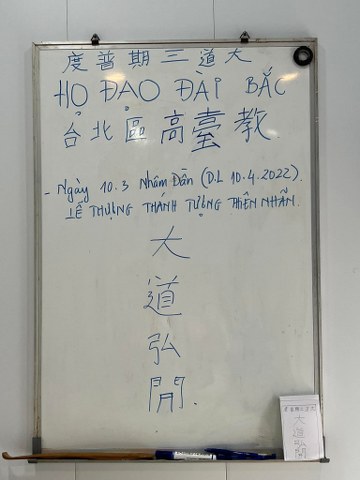 大道三期普度
HỌ ĐẠO ĐÀI BẮC
台北區高臺教
- Ngày 10.3 Nhâm Dần (D.L 10.4.2022).
LỄ THƯỢNG THÁNH TƯỢNG THIÊN NHÃN.
大道弘開.
大道弘開